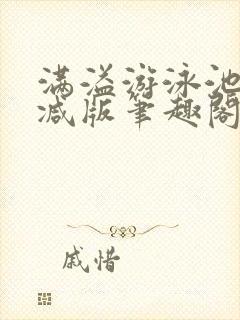 满溢游泳池
减版笔趣阁
戚惜